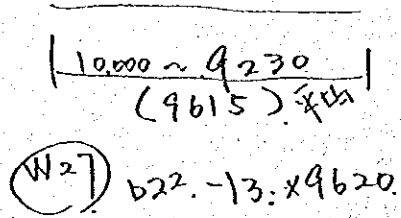 10,000 ~ 9230
(9615) 平均
W27 b22.-13.x9620.